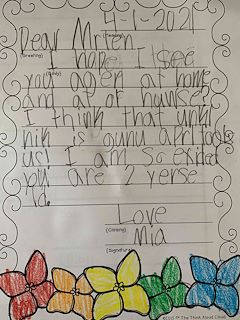 4-1-2021
(Heading)
Dear Mrien
(Greeting)
I hope I see
(Body)
you agen at home
and at or
I think that unkl
nik is apri fools
us! I am So exited
you are 2 verse
ld.
Love
(Closing)
Mia
(Signature)
The Think Aloud